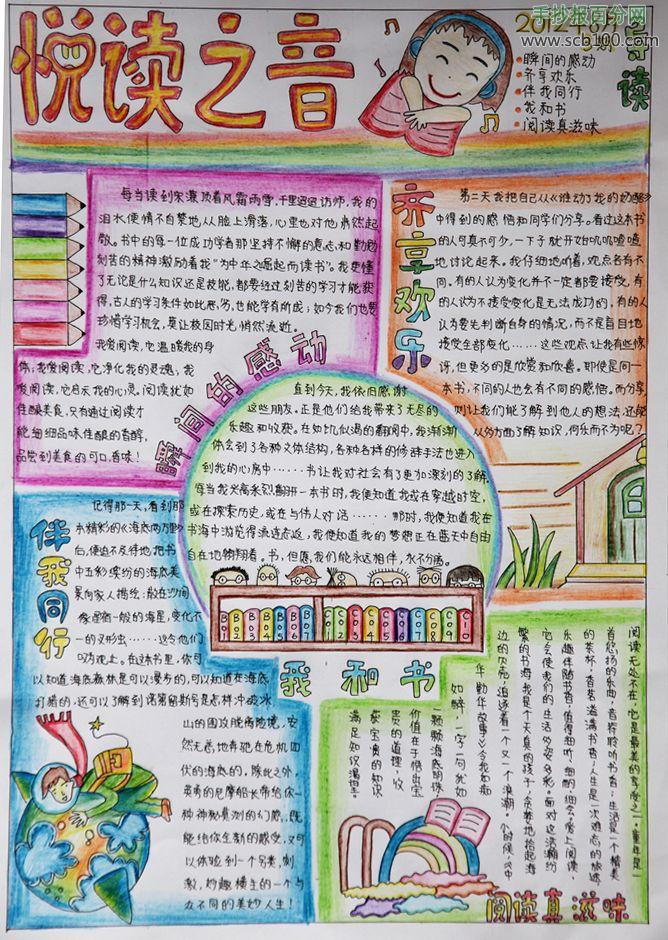 悦读之音
手抄报百分网
www.scb100.com
导读
瞬间的感动
齐享欢乐
伴我同行
我和书
阅读真滋味
每当读到宋濂顶着风霜雨雪,千里迢迢访师,我的
泪水便情不自禁地从脸上滑落,心里也对他肃然起
敬。书中的每一位成功学者那坚持不懈的意志和勤勉
刻苦的精神激励着我“为中华之崛起而读书”。我更懂
了无论是什么知识还是技能,都要经过刻苦的学习才能获
得,古人的学习条件如此恶劣,也能学有所成;如今我们也要
珍惜学习机会,莫让校园时光悄然流逝。
我爱阅读,它温暖我的身
体;我爱阅读,它净化我的灵魂;我
爱阅读,它启天我的心灵。阅读犹如
佳酿美食,只有通过阅读才
能细细品味佳酿的香醇,
品尝到美食的可口,香味!
瞬间的感动
齐享欢乐
第二天我把自己从《谁动了我的奶酪》
中得到的感悟和同学们分享。看过这本书
的人可真不少,一下子就开始叽叽喳喳
地讨论起来。我仔细地听着,观点各有不
同。有的人认为变化并不一定都要接受,有
的人认为不接受变化是无法成功的。有的人
认为要先判断自身的情况,而不是盲目地
接受全部变化……这些观点让我有些惊
讶,但更多的是欣赏和欣喜。即使是同一
本书,不同的人也会有不同的感悟。而分享
则让我们能了解到他人的想法,还能
从多方面了解知识,何乐而不为呢?
直到今天,我依旧感谢
这些朋友。正是他们给我带来了无尽的
乐趣和收获。在如饥似渴的翻阅中,我渐渐
体会到了各种文体结构,各种各样的修辞手法也进入
到我的心房中……书让我对社会有了更加深刻的了解。
每当我兴高采烈翻开一本书时,我便知道我或在穿越时空,
或在探索历史,或在与伟人对话……那时,我便知道我在
书海中游览得流连忘返,我便知道我的梦想正在蓝天中自由
自在地翱翔着。书,但愿,我们能永远相伴,永不分离。
B01 B02 B03 B04 B05 B06 B07 C01 C02 C03 C04 C05 C06 C07 C08 C09 C10
我和书
伴我同行
记得那一天,看到那
本精彩的《海底两万里》
后,便迫不及待地把书
中五彩缤纷的海底美
景向家人描绘:散在沙间
像星宿一般的海星,变化不
一的叉形虫……这令他们
叹为观止。在这本书里,你可
以知道海底森林是可以漫步的,可以知道在海底
打猎的,还可以了解到诺第留斯号是怎样冲破冰
山的围攻脱离险境,安
然无恙地奔驰在危机四
伏的海底的。除此之外,
英勇的尼摩船长带给你一
种神秘莫测的幻感,既
能给你全新的感受,又可
以体验到一个另类,刺
激,妙趣横生的一个与
众不同的美妙人生!
阅读无处不在,它是最美的享受之一。童年是一
首悠扬的乐曲,音符聆听书音;生活是一个精美
的茶杯,香茗溢满书香;人生是一次难忘的旅途,
乐趣伴随书香;值得细听,细闻,细会。爱上阅读,
它会使我们的生活多姿多彩。面对这浩瀚纷
繁的书海,我是个天真的孩子,会赞地拾起海
边的贝壳,追逐着一个又一个浪潮。小时候,《中
华勤学故事》令我如痴
如醉,一字一句犹如
一颗颗海底明珠,
价值在于悟出宝
贵的道理,收
获宝贵的知识,
满足知识渴望。
阅读真滋味